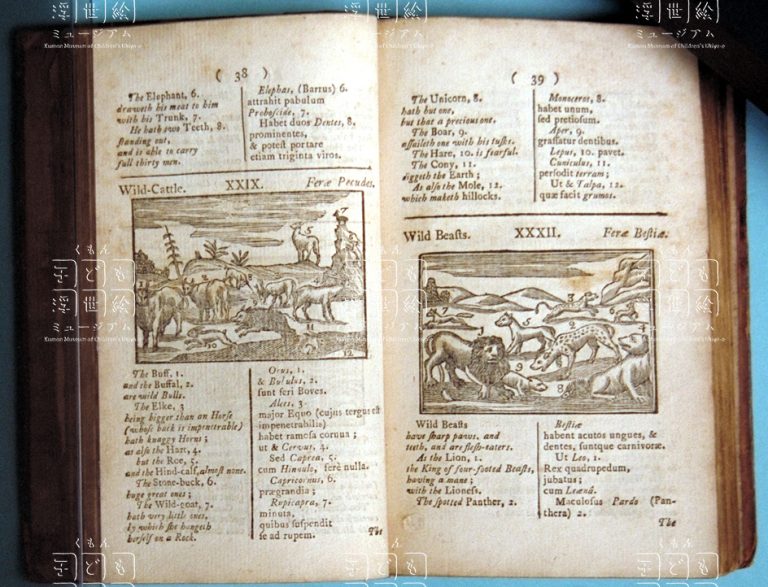 ( 38 )
The Elephant, 6.
draweth his meat to him
with his Trunk, 7.
He hath two Teeth, 8.
standing out,
and is able to carry
full thirty men.
Elephas, (Barrus) 6.
attrahit pabulum
Proboscide, 7.
Habet duos Dentes, 8.
prominentes,
& potest portare
etiam triginta viros.
Wild-Cattle. XXIX. Feræ Pecudes.
The Buff, 1.
and the Buffal, 2.
are wild Bulls.
The Elke, 3
being bigger than an Horse
(whose back is impenetrable)
hath knaggy Horns;
as also the Hart, 4.
but the Roe, 5.
and the Hind-calf, almost none.
The Stone-buck, 6.
huge great ones;
The Wild-goat, 7.
hath very little ones,
by which she hangeth
herself on a Rock.
Urus, 1.
& Bubulus, 2.
sunt feri Boves.
Alces, 3.
major Equo (cujus tergus est
impenetrabilis)
habet ramosa cornua;
ut & Cervus, 4.
Sed Caprea, 5.
cum Hinnulo, ferè nulla.
Capricornus, 6.
prægrandia;
Rupicapra, 7.
minuta,
quibus suspendit
se ad rupem.
The
( 39 )
The Unicorn, 8.
hath but one,
but that a precious one.
The Boar, 9.
assaileth one with his tushes.
The Hare, 10. is fearful.
The Cony, 11.
diggeth the Earth;
As also the Mole, 12.
which maketh hillocks.
Monoceros, 8.
habet unum,
sed pretiosum.
Aper, 9.
grassatur dentibus.
Lepus, 10. pavet.
Cuniculus, 11.
perfodit terram;
Ut & Talpa, 12.
quæ facit grumos.
Wild Beasts. XXXII. Feræ Bestiæ.
Wild Beasts
have sharp paws, and
teeth, and are flesh-eaters.
As the Lion, 1.
the King of four-footed Beasts,
having a mane;
with the Lioness.
The spotted Panther, 2.
Bestiæ
habent acutos ungues, &
dentes, suntque carnivoræ.
Ut Leo, 1.
Rex quadrupedum,
jubatus;
cum Leænâ.
Maculosus Pardo (Pan-
thera) 2.
The
くもん
子ども
浮世絵
ミュージアム
Kumon Museum of Children's Ukiyo-e